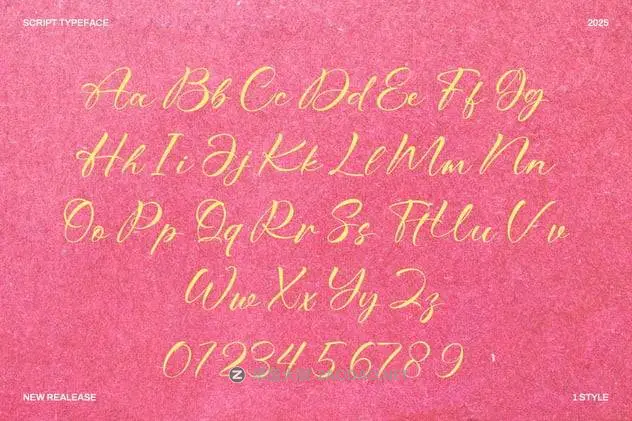 SCRIPT TYPEFACE 2025
Aa Bb Cc Dd Ee Ff Gg
Hh Ii Jj Kk Ll Mm Nn
Oo Pp Qq Rr Ss Tt Uu Vv
Ww Xx Yy Zz
0 1 2 3 4 5 6 7 8 9
NEW REALEASE 1 STYLE